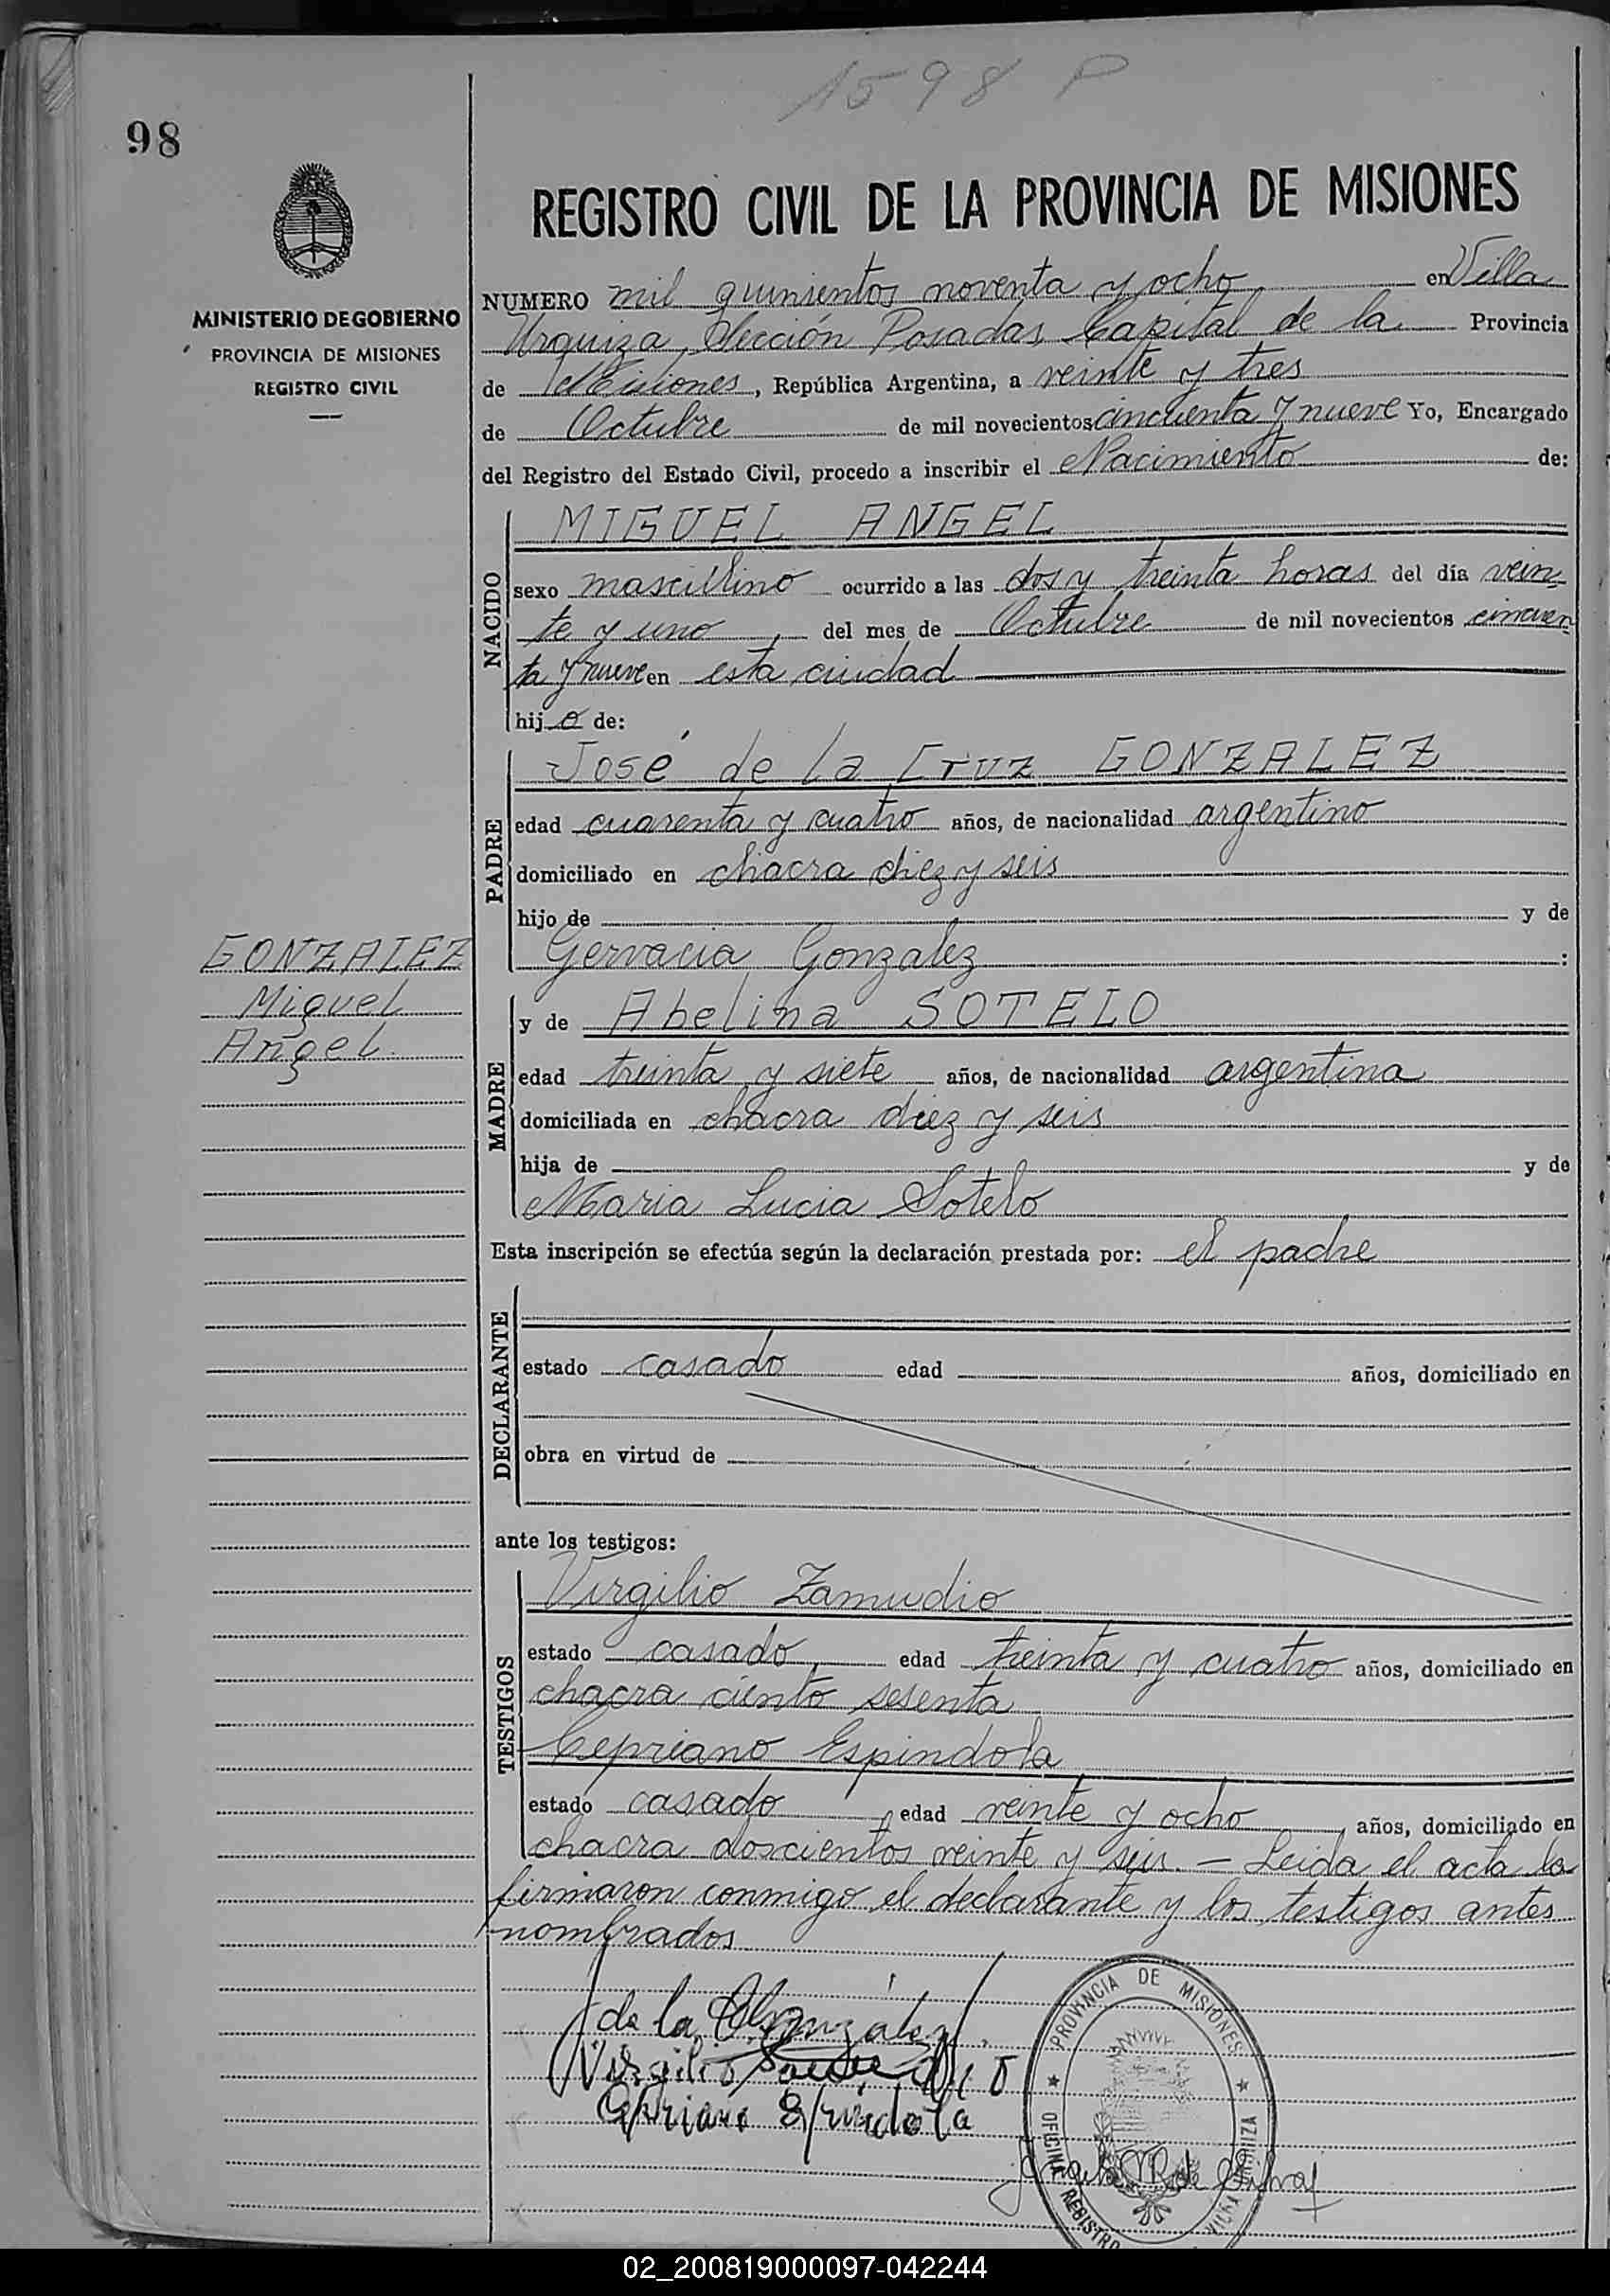 1598 P
98
REGISTRO CIVIL DE LA PROVINCIA DE MISIONES
MINISTERIO DE GOBIERNO
PROVINCIA DE MISIONES
REGISTRO CIVIL
NUMERO mil quinientos noventa y ocho en Villa
Urquiza, Sección Posadas, Capital de la Provincia
de Misiones, República Argentina, a veinte y tres
de Octubre de mil novecientos cincuenta y nueve Yo, Encargado
del Registro del Estado Civil, procedo a inscribir el Nacimiento de:
NACIDO
MIGUEL ANGEL
sexo masculino ocurrido a las dos y treinta horas del día vein-
te y uno, del mes de Octubre de mil novecientos cincuen
ta y nueve en esta ciudad
hijo de:
PADRE
José de la Cruz GONZALEZ
edad cuarenta y cuatro años, de nacionalidad argentino
domiciliado en chacra diez y seis
hijo de y de
Gervacia Gonzalez :
GONZALEZ
Miguel
Angel.
MADRE
y de Abelina SOTELO
edad treinta y siete años, de nacionalidad argentina
domiciliada en chacra diez y seis
hija de y de
Maria Lucia Sotelo
Esta inscripción se efectúa según la declaración prestada por: el padre
DECLARANTE
estado casado edad años, domiciliado en
obra en virtud de
ante los testigos:
TESTIGOS
Virgilio Zamudio
estado casado edad treinta y cuatro años, domiciliado en
chacra ciento sesenta
Cepriano Espindola
estado casado, edad veinte y ocho, años, domiciliado en
chacra doscientos veinte y seis. — Leida el acta la
firmaron conmigo el declarante y los testigos antes
nombrados
J de la C Gonzalez
Virgilio Zamudio
Cepriano Espindola
PROVINCIA DE MISIONES
OFICINA REGISTRO
VILLA URQUIZA
02_200819000097-042244